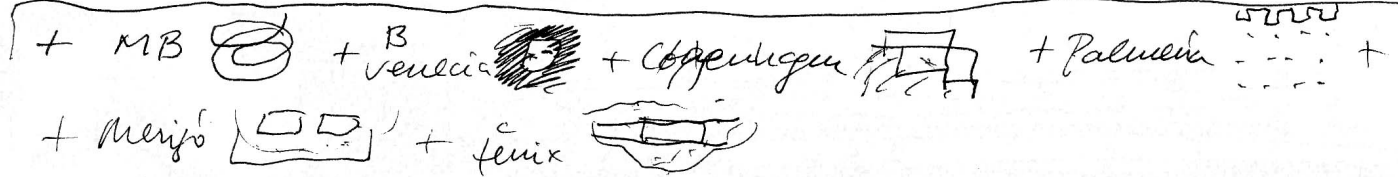 + MB + B Venecia + Coppenhagen + Palmeria +
+ Merijó + c fénix